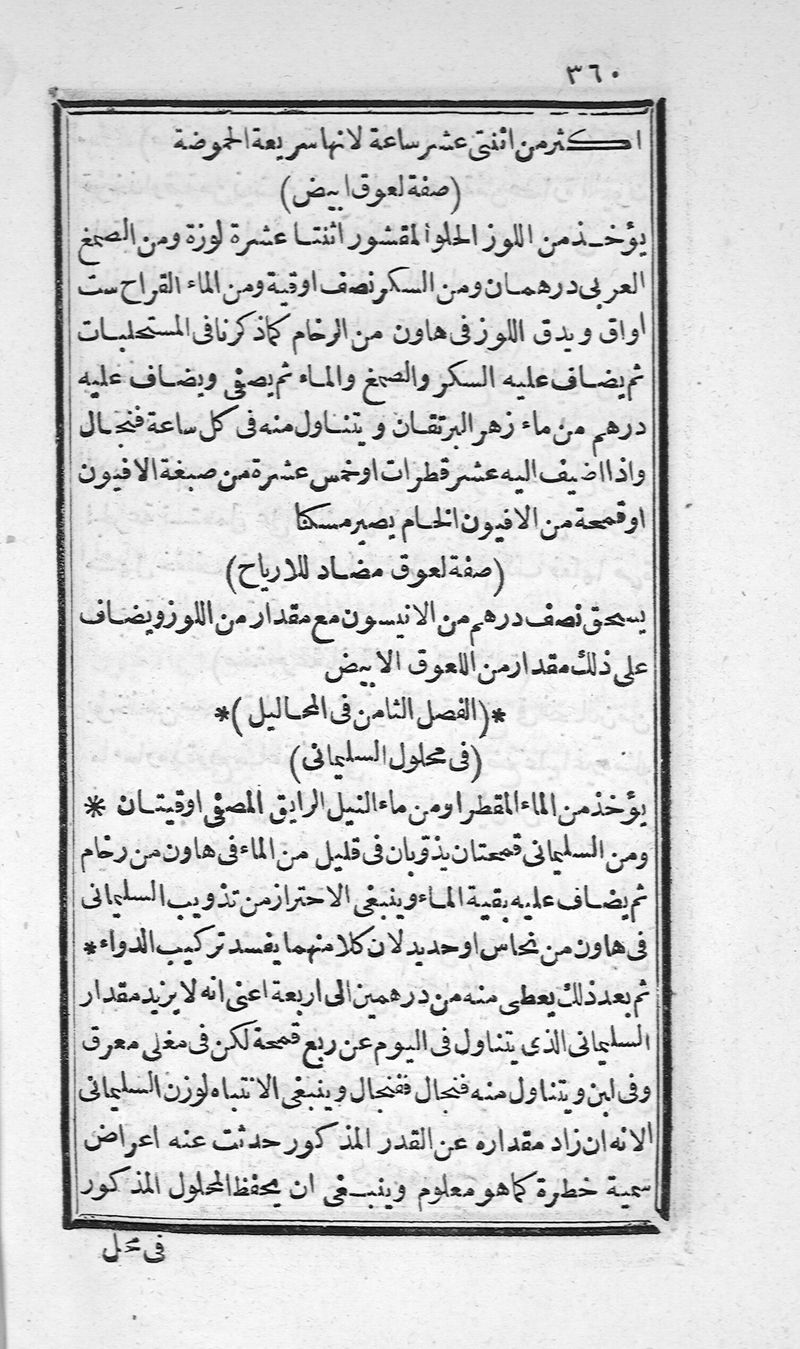 ٣٦٠
اكثر من اثنتى عشر ساعة لانها سريعة الحموضة
(صفة لعوق ابيض)
يؤخذ من اللوز الحلو المقشور اثنتا عشرة لوزة ومن الصمغ
العربى درهمان ومن السكر نصف اوقية ومن الماء القراح ست
اواق ويدق اللوز فى هاون من الرخام كما ذكرنا فى المستحلبات
ثم يضاف عليه السكر والصمغ والماء ثم يصفى ويضاف عليه
درهم من ماء زهر البرتقان ويتناول منه فى كل ساعة فنجال
واذا اضيف اليه عشر قطرات او خمس عشرة من صبغة الافيون
او قمحة من الافيون الخام يصير مسكنا
(صفة لعوق مضاد للارياح)
يسحق نصف درهم من الانيسون مع مقدار من اللوز ويضاف
على ذلك مقدار من اللعوق الابيض
*(الفصل الثامن فى المحاليل)*
(فى محلول السليمانى)
يؤخذ من الماء المقطر او من ماء النيل الرايق المصفى اوقيتان *
ومن السليمانى قمحتان يذوّبان فى قليل من الماء فى هاون من رخام
ثم يضاف عليه بقية الماء وينبغى الاحتراز من تذويب السليمانى
فى هاون من نحاس او حديد لان كلا منهما يفسد تركيب الدواء *
ثم بعد ذلك يعطى منه من درهمين الى اربعة اعنى انه لا يزيد مقدار
السليمانى الذى يتناول فى اليوم عن ربع قمحة لكن فى مغلى معرق
وفى لبن ويتناول منه فنجال ففنجال وينبغى الانتباه لوزن السليمانى
لانه ان زاد مقداره عن القدر المذكور حدثت عنه اعراض
سمية خطرة كما هو معلوم وينبغى ان يحفظ المحلول المذكور
فى محل